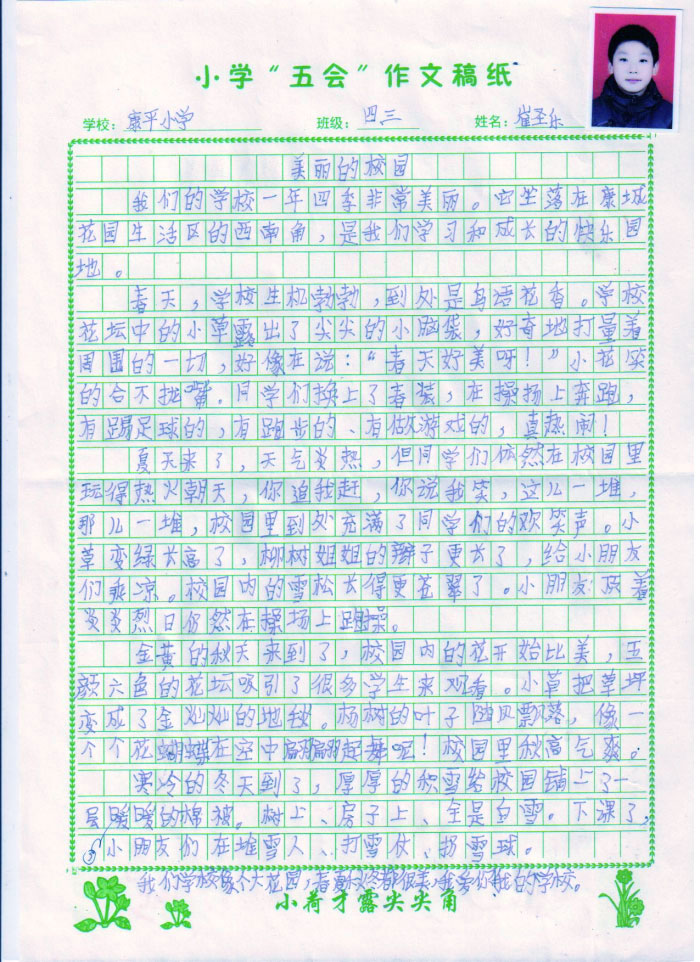 小学“五会”作文稿纸
学校: 康平小学 班级: 四三 姓名: 崔圣乐
美丽的校园
我们的学校一年四季非常美丽。它坐落在康城
花园生活区的西南角,是我们学习和成长的快乐园
地。
春天,学校生机勃勃,到处是鸟语花香。学校
花坛中的小草露出了尖尖的小脑袋,好奇地打量着
周围的一切,好像在说:“春天好美呀!”小花笑
的合不拢嘴。同学们换上了春装,在操场上奔跑,
有踢足球的,有跑步的、有做游戏的,真热闹!
夏天来了,天气炎热,但同学们依然在校园里
玩得热火朝天,你追我赶,你说我笑,这儿一堆,
那儿一堆,校园里到处充满了同学们的欢笑声。小
草变绿长高了,柳树姐姐的辫子更长了,给小朋友
们乘凉。校园内的雪松长得更苍翠了。小朋友顶着
炎炎烈日仍然在操场上跑操。
金黄的秋天来到了,校园内的花开始比美,五
颜六色的花坛吸引了很多学生来观看。小草把草坪
变成了金灿灿的地毯。杨树的叶子随风飘落,像一
个个花蝴蝶在空中翩翩起舞呢!校园里秋高气爽。
寒冷的冬天到了,厚厚的积雪给校园铺上了一
层暖暖的棉被。树上、房子上、全是白雪。下课了,
小朋友们在堆雪人、打雪仗、扔雪球。
我们学校像个大花园,春夏秋冬都很美,我爱你我的学校。
小荷才露尖尖角